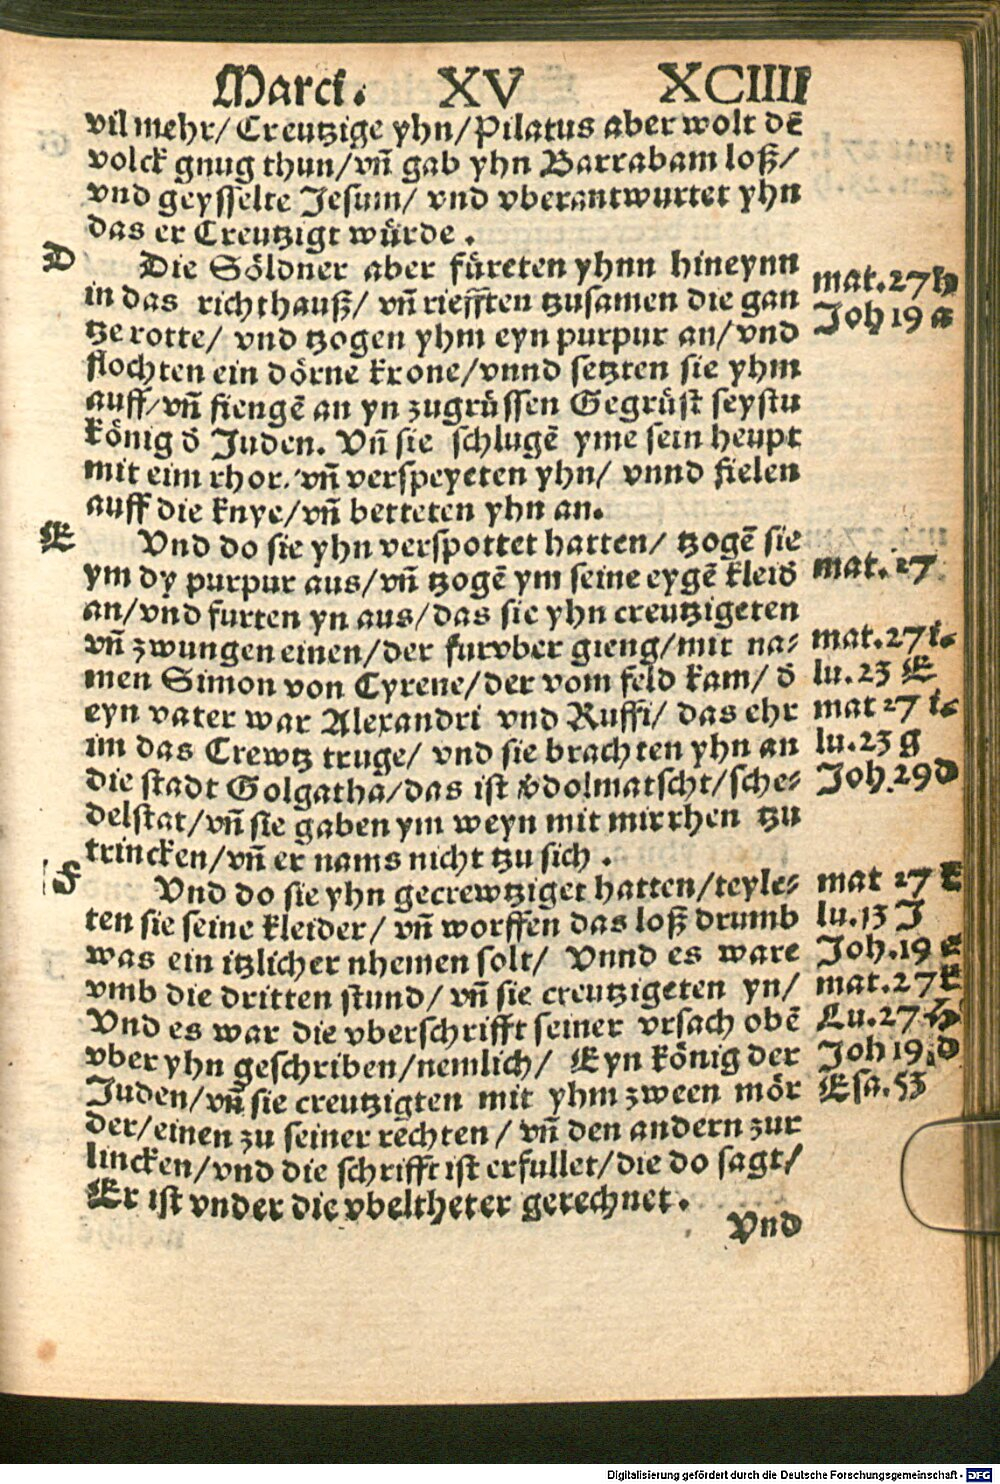 Marck. XV XCIIII
vil mehr/ Creutzige yhn/ Pilatus aber wolt dē
volck gnug thun/ vñ gab yhn Barrabam loß/
vnd geysselte Jesum/ vnd vberantwurtet yhn
das er Creutzigt würde.
D Die Söldner aber füreten yhnn hineynn
mat.27 h
in das richthauß/ vñ riefften tzusamen die gan
Joh 19 a
tze rotte/ vnd tzogen yhm eyn purpur an/ vnd
flochten ein dörne krone/ vnnd setzten sie yhm
auff/ vñ fiengē an yn zugrüssen Gegrüst seystu
König d̄ Juden. Vñ sie schlugē yme sein heupt
mit eim rhor/ vñ verspeyeten yhn/ vnnd fielen
auff die knye/ vñ betteten yhn an.
E Vnd do sie yhn verspottet hatten/ tzogē sie
ym dy purpur aus/ vñ tzogē ym seine eygē kleid̄
mat.27
an/ vnd furten yn aus/ das sie yhn creutzigeten
vñ zwungen einen/ der furvber gieng/ mit na⸗
mat.27 i
men Simon von Cyrene/ der vom feld kam/ d̄
lu.23 E
eyn vater war Alexandri vnd Ruffi/ das ehr
mat 27 i
im das Crewtz truge/ vnd sie brachten yhn an
lu.23 g
die stadt Golgatha/ das ist v̄dolmatscht/ sche⸗
Joh.29 d
delstat/ vñ sie gaben ym weyn mit mirrhen tzu
trincken/ vñ er nams nicht tzu sich.
F Vnd do sie yhn gecrewtziget hatten/ teyle⸗
mat 27 k
ten sie seine kleider/ vñ worffen das loß drumb
lu.13 J
was ein itzlicher nhemen solt/ Vnnd es ware
Joh.19 e
vmb die dritten stund/ vñ sie creutzigeten yn/
mat.27 k
Vnd es war die vberschrifft seiner vrsach obē
Lu.27 h
vber yhn geschriben/ nemlich/ Eyn könig der
Joh 19 d
Juden/ vñ sie creutzigten mit yhm zween mör
Esa.53
der/ einen zu seiner rechten/ vñ den andern zur
lincken/ vnd die schrifft ist erfullet/ die do sagt/
Er ist vnder die vbeltheter gerechnet.
Vnd
Digitalisierung gefördert durch die Deutsche Forschungsgemeinschaft - DFG